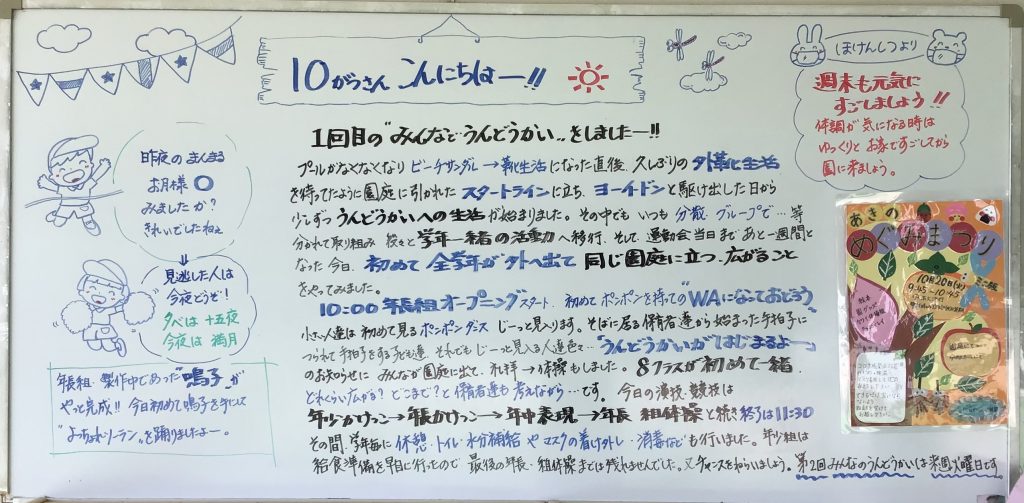 10がつさん こんにちはー!!
昨夜のまんまる
お月様〇
みましたか?
きれいでしたねぇ
見逃した人は
今夜どうぞ!
夕べは 十五夜
今夜は 満月
年長組・製作中であった"鳴子"が
やっと完成!! 今日初めて鳴子を手にして
"よっちょれソーラン"を踊りましたよー。
1回目の"みんなとうんどうかい"をしましたー!!
プールがなくなくなり ビーチサンダル→靴生活になった直後、久しぶりの外靴生活
を待ってたように園庭に引かれた スタートラインに立ち、ヨーイ・ドンと駆け出した日から
少しずつ うんどうかいへの生活が始まりました。その中でも いつも 分散、グループで…等
分かれて取り組み 段々と学年一緒の活動へ移行、そして、運動会当日まであと一週間と
なった今日、初めて 全学年が外へ出て 同じ園庭に立つ・広がること
をやってみました。
10:00 年長組オープニングスタート、初めてポンポンを持っての"WAになっておどろう"
小さい人達は初めて見るポンポンダンス じーっと見入ります。そばに居る保育者達から始まった手拍子に
つられて手拍子をする子も達、それでもじーっと見入る人達色々…"うんどうかいがはじまるよー"
のお知らせに みんなが園庭に出て、礼拝→体操もしました。8クラスが初めて一緒、
どれくらい広がる?どこまで?と保育者達も考えながら…です。 今日の演技、競技は
年少かけっこ→年長かけっこ→年中表現→年長 組体操と続き終了は11:30
その間、学年毎に休憩・トイレ・水分補給やマスクの着け外し・消毒なども行いました。年少組は
給食準備を早目に行ったので 最後の年長・組体操までは残れませんでした。又チャンスをねらいましょう。第2回みんなのうんどうかいは来週火曜日です
ほけんしつより
週末も元気に
すごしましょう!!
体調が気になる時は
ゆっくりとお家ですごしてから
園に来ましょう。
あきの
めぐみまつり
10月20日(火)
9:45~10:45